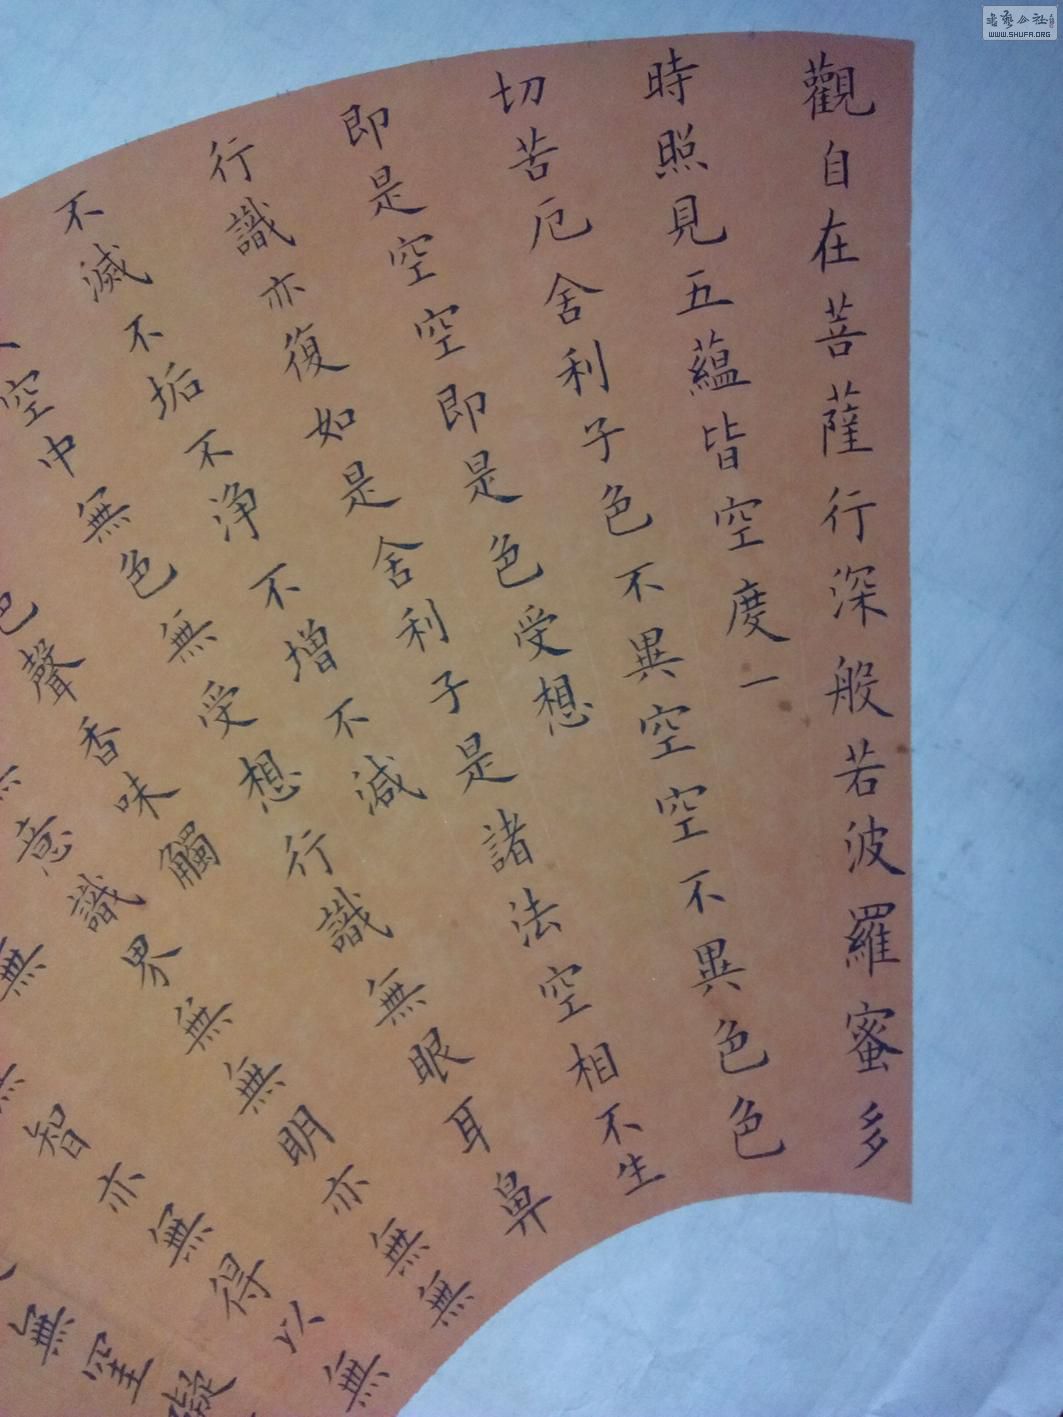 觀自在菩薩行深般若波羅蜜多
時照見五蘊皆空度一
切苦厄舍利子色不異空空不異色色
即是空空即是色受想
行識亦復如是舍利子是諸法空相不生
不滅不垢不淨不增不減
空中無色無受想行識無眼耳鼻
色聲香味觸
無意識界無無明亦無無
無
無智亦無得以無
無罣礙
書藝公社
WWW.SHUFA.ORG